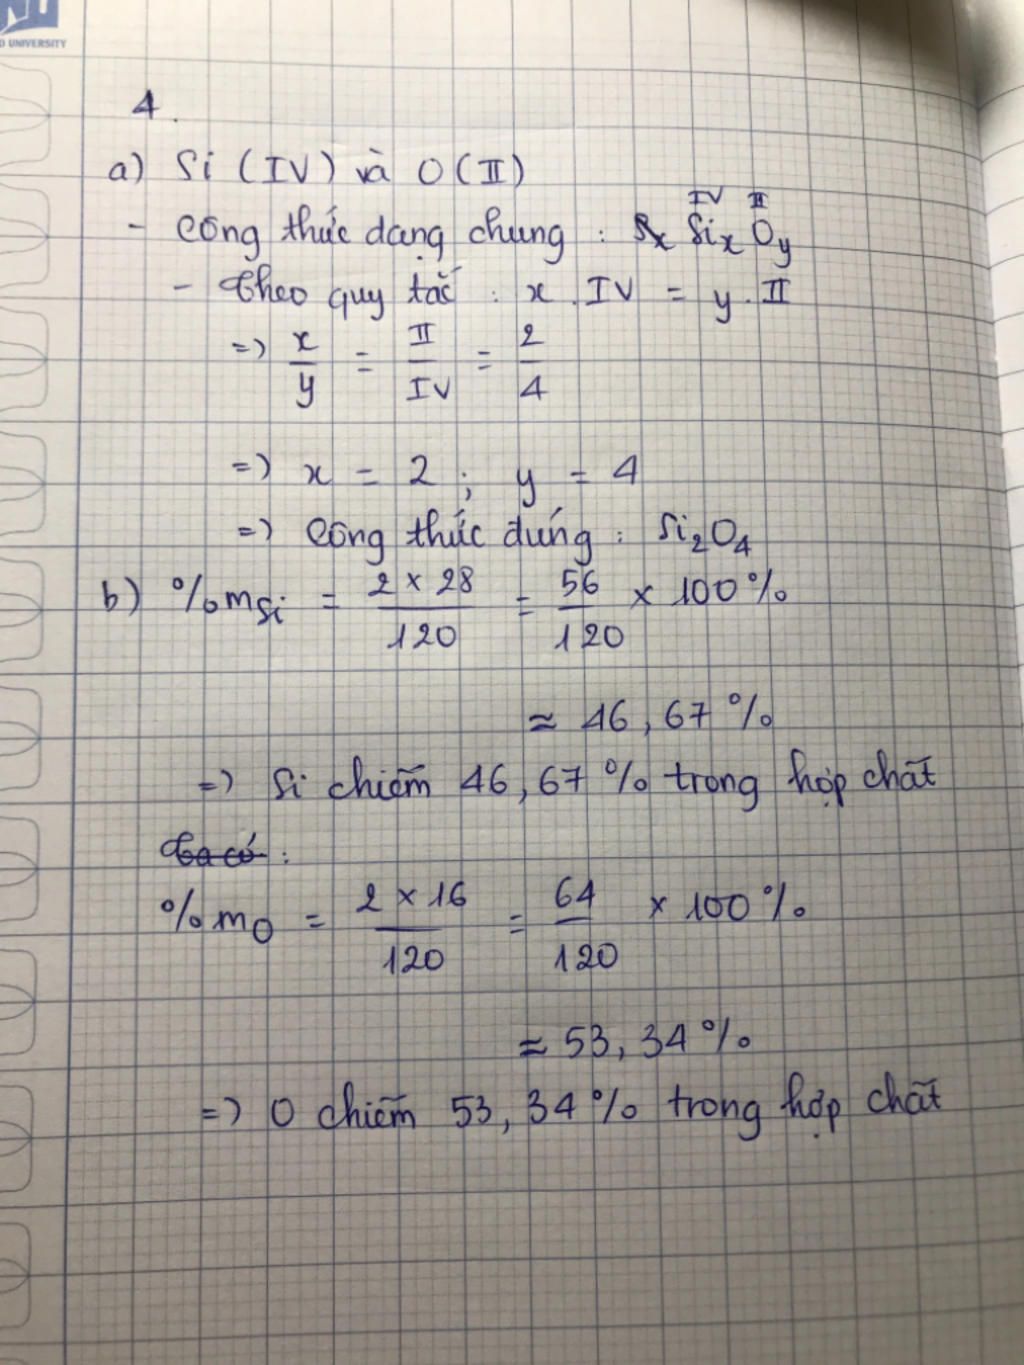 UNIVERSITY
4.
a) Si (IV) và O (II)
- Công thức dạng chung : SixOy
IV II
- Theo quy tắc : x . IV = y . II
=> x/y = II/IV = 2/4
=> x = 2 ; y = 4
=> Công thức đúng : Si₂O₄
b) %mSi = 2 × 28 / 120 = 56 / 120 × 100%
≈ 46,67 %
=> Si chiếm 46,67 % trong hợp chất
Ta có :
%mO = 2 × 16 / 120 = 64 / 120 × 100%
≈ 53,34 %
=> O chiếm 53,34 % trong hợp chất